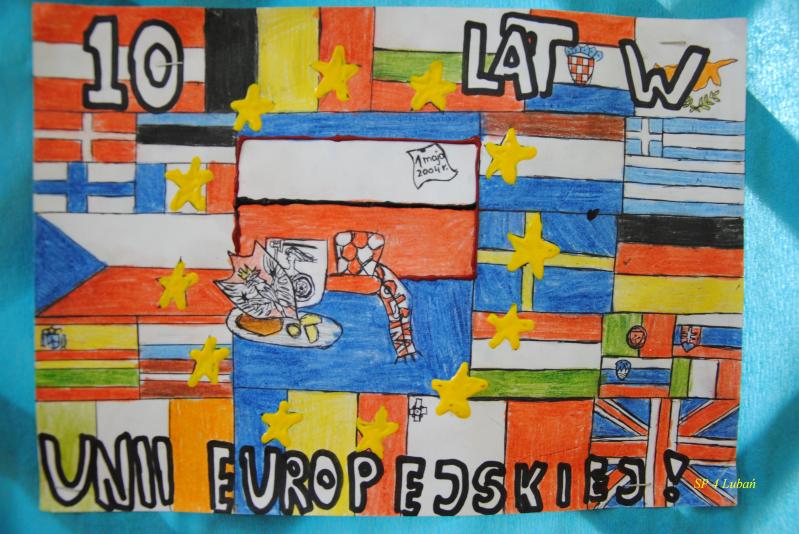 10 LAT W
1 maja
2004 r.
UNII EUROPEJSKIEJ!
SP 4 Lubań